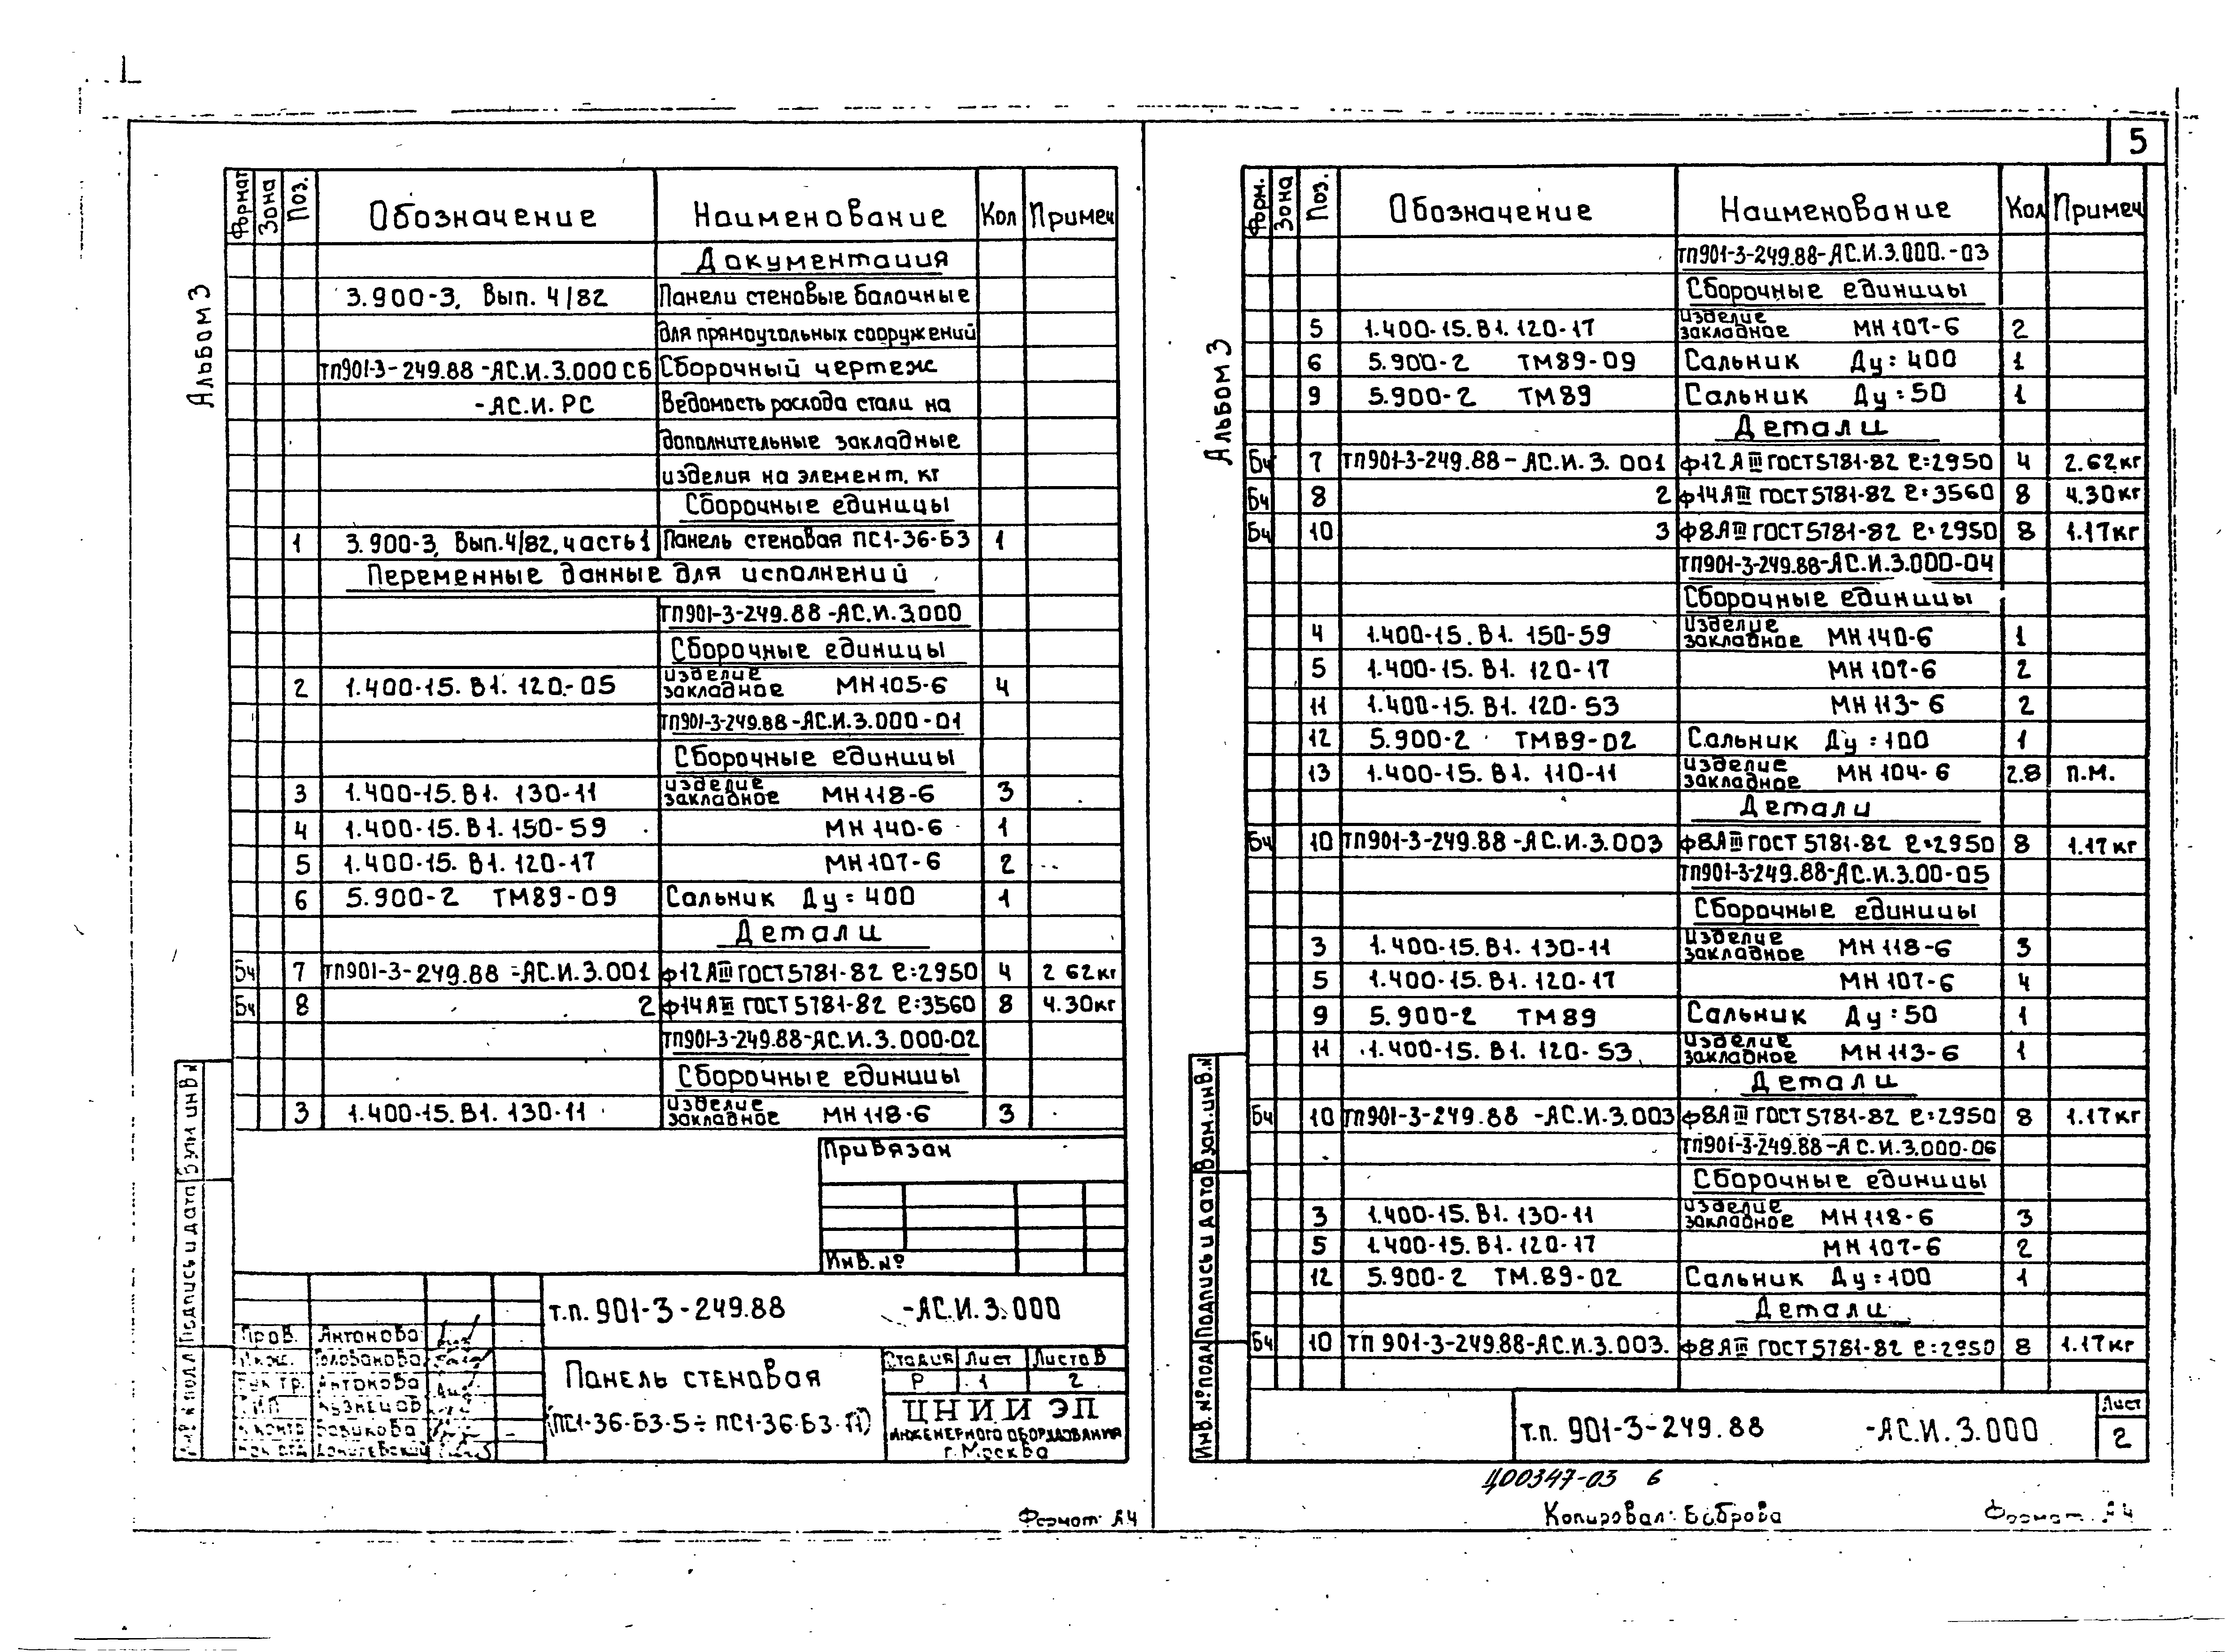 5
Альбом 3
Формат Зона Поз. Обозначение Наименование Кол Примеч
Документация
3.900-3, Вып. 4/82 Панели стеновые балочные
для прямоугольных сооружений
ТП901-3-249.88-АС.И.3.000 СБ Сборочный чертеж
-АС.И.РС Ведомость расхода стали на
дополнительные закладные
изделия на элемент, кг
Сборочные единицы
1 3.900-3, Вып.4/82, часть 1 Панель стеновая ПС1-36-Б3 1
Переменные данные для исполнений
ТП901-3-249.88-АС.И.3.000
Сборочные единицы
2 1.400-15.В1.120-05 изделие закладное МН105-6 4
ТП901-3-249.88-АС.И.3.000-01
Сборочные единицы
3 1.400-15.В1.130-11 изделие закладное МН118-6 3
4 1.400-15.В1.150-59 МН140-6 1
5 1.400-15.В1.120-17 МН107-6 2
6 5.900-2 ТМ89-09 Сальник Ду=400 1
Детали
Бч 7 ТП901-3-249.88-АС.И.3.001 ф12АIII ГОСТ5781-82 ℓ=2950 4 2 62кг
Бч 8 2 ф14АIII ГОСТ5781-82 ℓ=3560 8 4.30кг
ТП901-3-249.88-АС.И.3.000-02
Сборочные единицы
3 1.400-15.В1.130-11 изделие закладное МН118-6 3
Привязан
Инв.№
т.п. 901-3-249.88 -АС.И.3.000
Пров. Антонова
Голованова
Антонова
Кузнецов
Панель стеновая
(ПС1-36-Б3-5÷ПС1-36-Б3-11)
Стадия Лист Листов
Р 1 2
ЦНИИЭП
инженерного оборудования
г. Москва
Подпись и дата
Формат А4
Альбом 3
Форм. Зона Поз. Обозначение Наименование Кол Примеч
ТП901-3-249.88-АС.И.3.000.-03
Сборочные единицы
5 1.400-15.В1.120-17 изделие закладное МН107-6 2
6 5.900-2 ТМ89-09 Сальник Ду=400 1
9 5.900-2 ТМ89 Сальник Ду=50 1
Детали
Бч 7 ТП901-3-249.88-АС.И.3.001 ф12АIII ГОСТ5781-82 ℓ=2950 4 2.62кг
Бч 8 2 ф14АIII ГОСТ5781-82 ℓ=3560 8 4.30кг
Бч 10 3 ф8АIII ГОСТ5781-82 ℓ=2950 8 1.17кг
ТП901-3-249.88-АС.И.3.000-04
Сборочные единицы
4 1.400-15.В1.150-59 изделие закладное МН140-6 1
5 1.400-15.В1.120-17 МН107-6 2
11 1.400-15.В1.120-53 МН113-6 2
12 5.900-2 ТМ89-02 Сальник Ду=100 1
13 1.400-15.В1.110-11 изделие закладное МН104-6 2.8 п.м.
Детали
Бч 10 ТП901-3-249.88-АС.И.3.003 ф8АIII ГОСТ5781-82 ℓ=2950 8 1.17кг
ТП901-3-249.88-АС.И.3.00-05
Сборочные единицы
3 1.400-15.В1.130-11 изделие закладное МН118-6 3
5 1.400-15.В1.120-17 МН107-6 4
9 5.900-2 ТМ89 Сальник Ду=50 1
11 1.400-15.В1.120-53 изделие закладное МН113-6 1
Детали
Бч 10 ТП901-3-249.88-АС.И.3.003 ф8АIII ГОСТ5781-82 ℓ=2950 8 1.17кг
ТП901-3-249.88-АС.И.3.000-06
Сборочные единицы
3 1.400-15.В1.130-11 изделие закладное МН118-6 3
5 1.400-15.В1.120-17 МН107-6 2
12 5.900-2 ТМ.89-02 Сальник Ду=100 1
Детали
Бч 10 ТП901-3-249.88-АС.И.3.003. ф8АIII ГОСТ5781-82 ℓ=2950 8 1.17кг
Инв.№подл Подпись и дата Взам.инв.№
т.п. 901-3-249.88 -АС.И.3.000
Лист
2
Ц00347-03 6
Копировал: Боброва
Формат А4